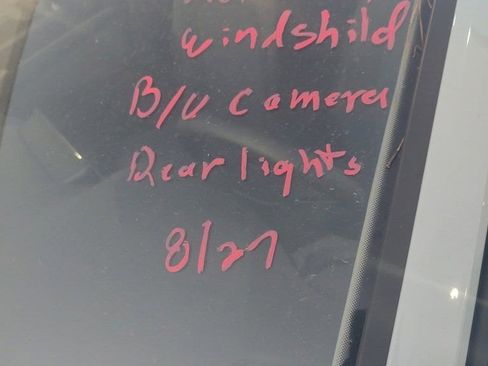 windshild
B/U Cameras
Rear lights
8/27